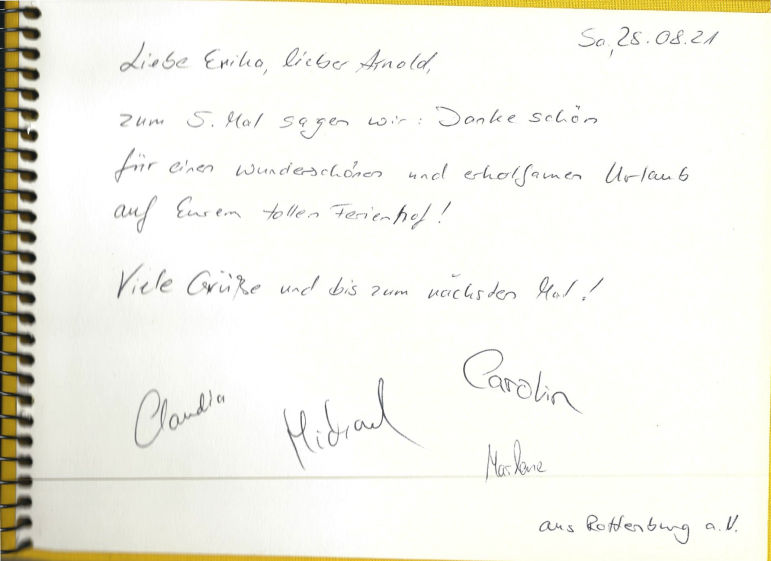 Sa, 28.08.21
Liebe Erika, lieber Arnold,
zum 5. Mal sagen wir: Danke schön
für einen wunderschönen und erholsamen Urlaub
auf Eurem tollen Ferienhof!
Viele Grüße und bis zum nächsten Mal!
Carolin
Claudia Michael
Marlene
aus Rottenburg a.N.